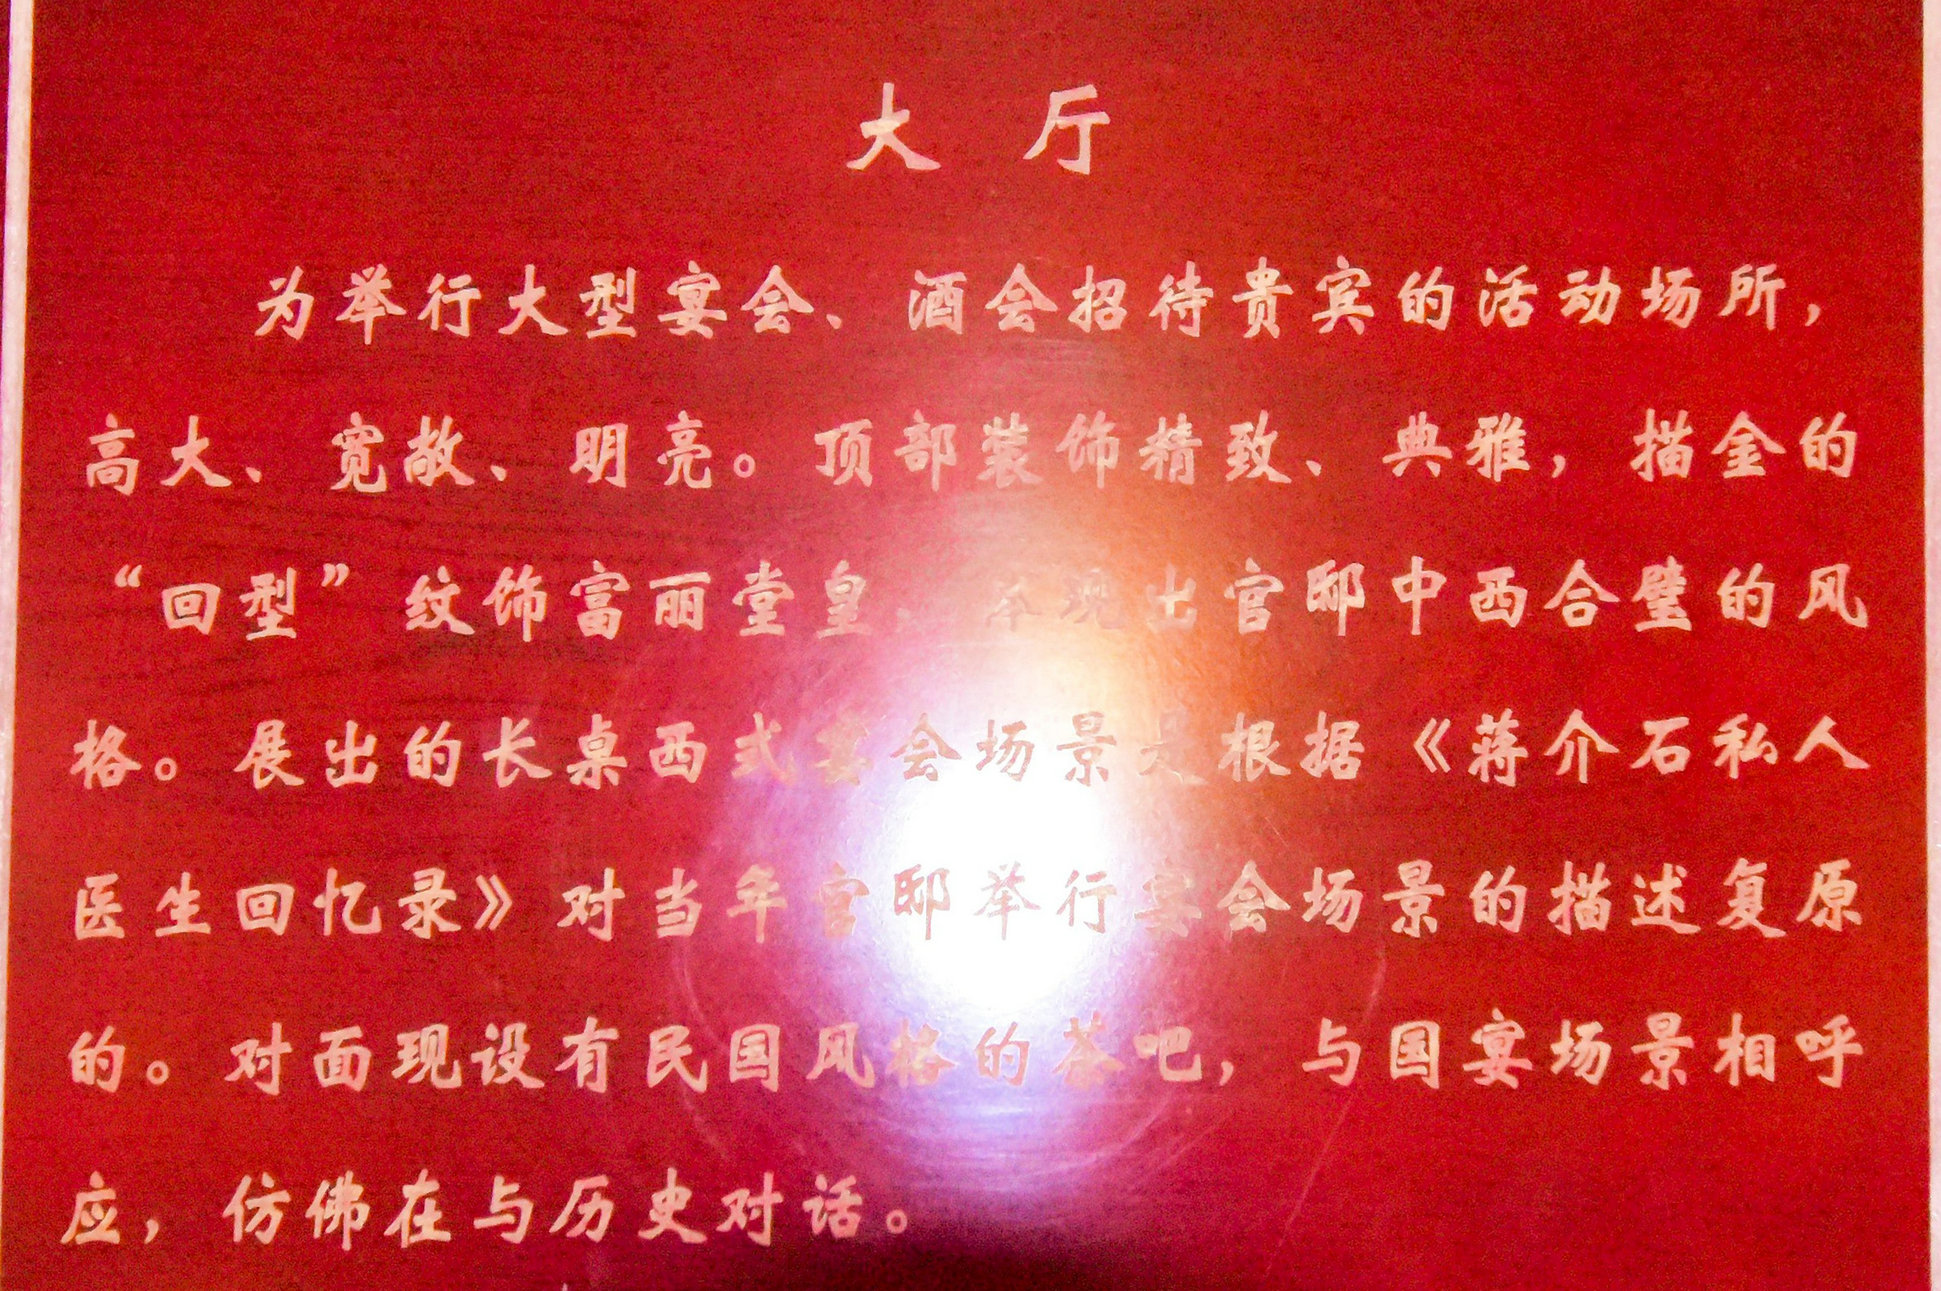 大 厅
为举行大型宴会、酒会招待贵宾的活动场所，
高大、宽敞、明亮。顶部装饰精致、典雅，描金的
“回型”纹饰富丽堂皇，体现出官邸中西合璧的风
格。展出的长桌西式宴会场景是根据《蒋介石私人
医生回忆录》对当年官邸举行宴会场景的描述复原
的。对面现设有民国风格的茶吧，与国宴场景相呼
应，仿佛在与历史对话。